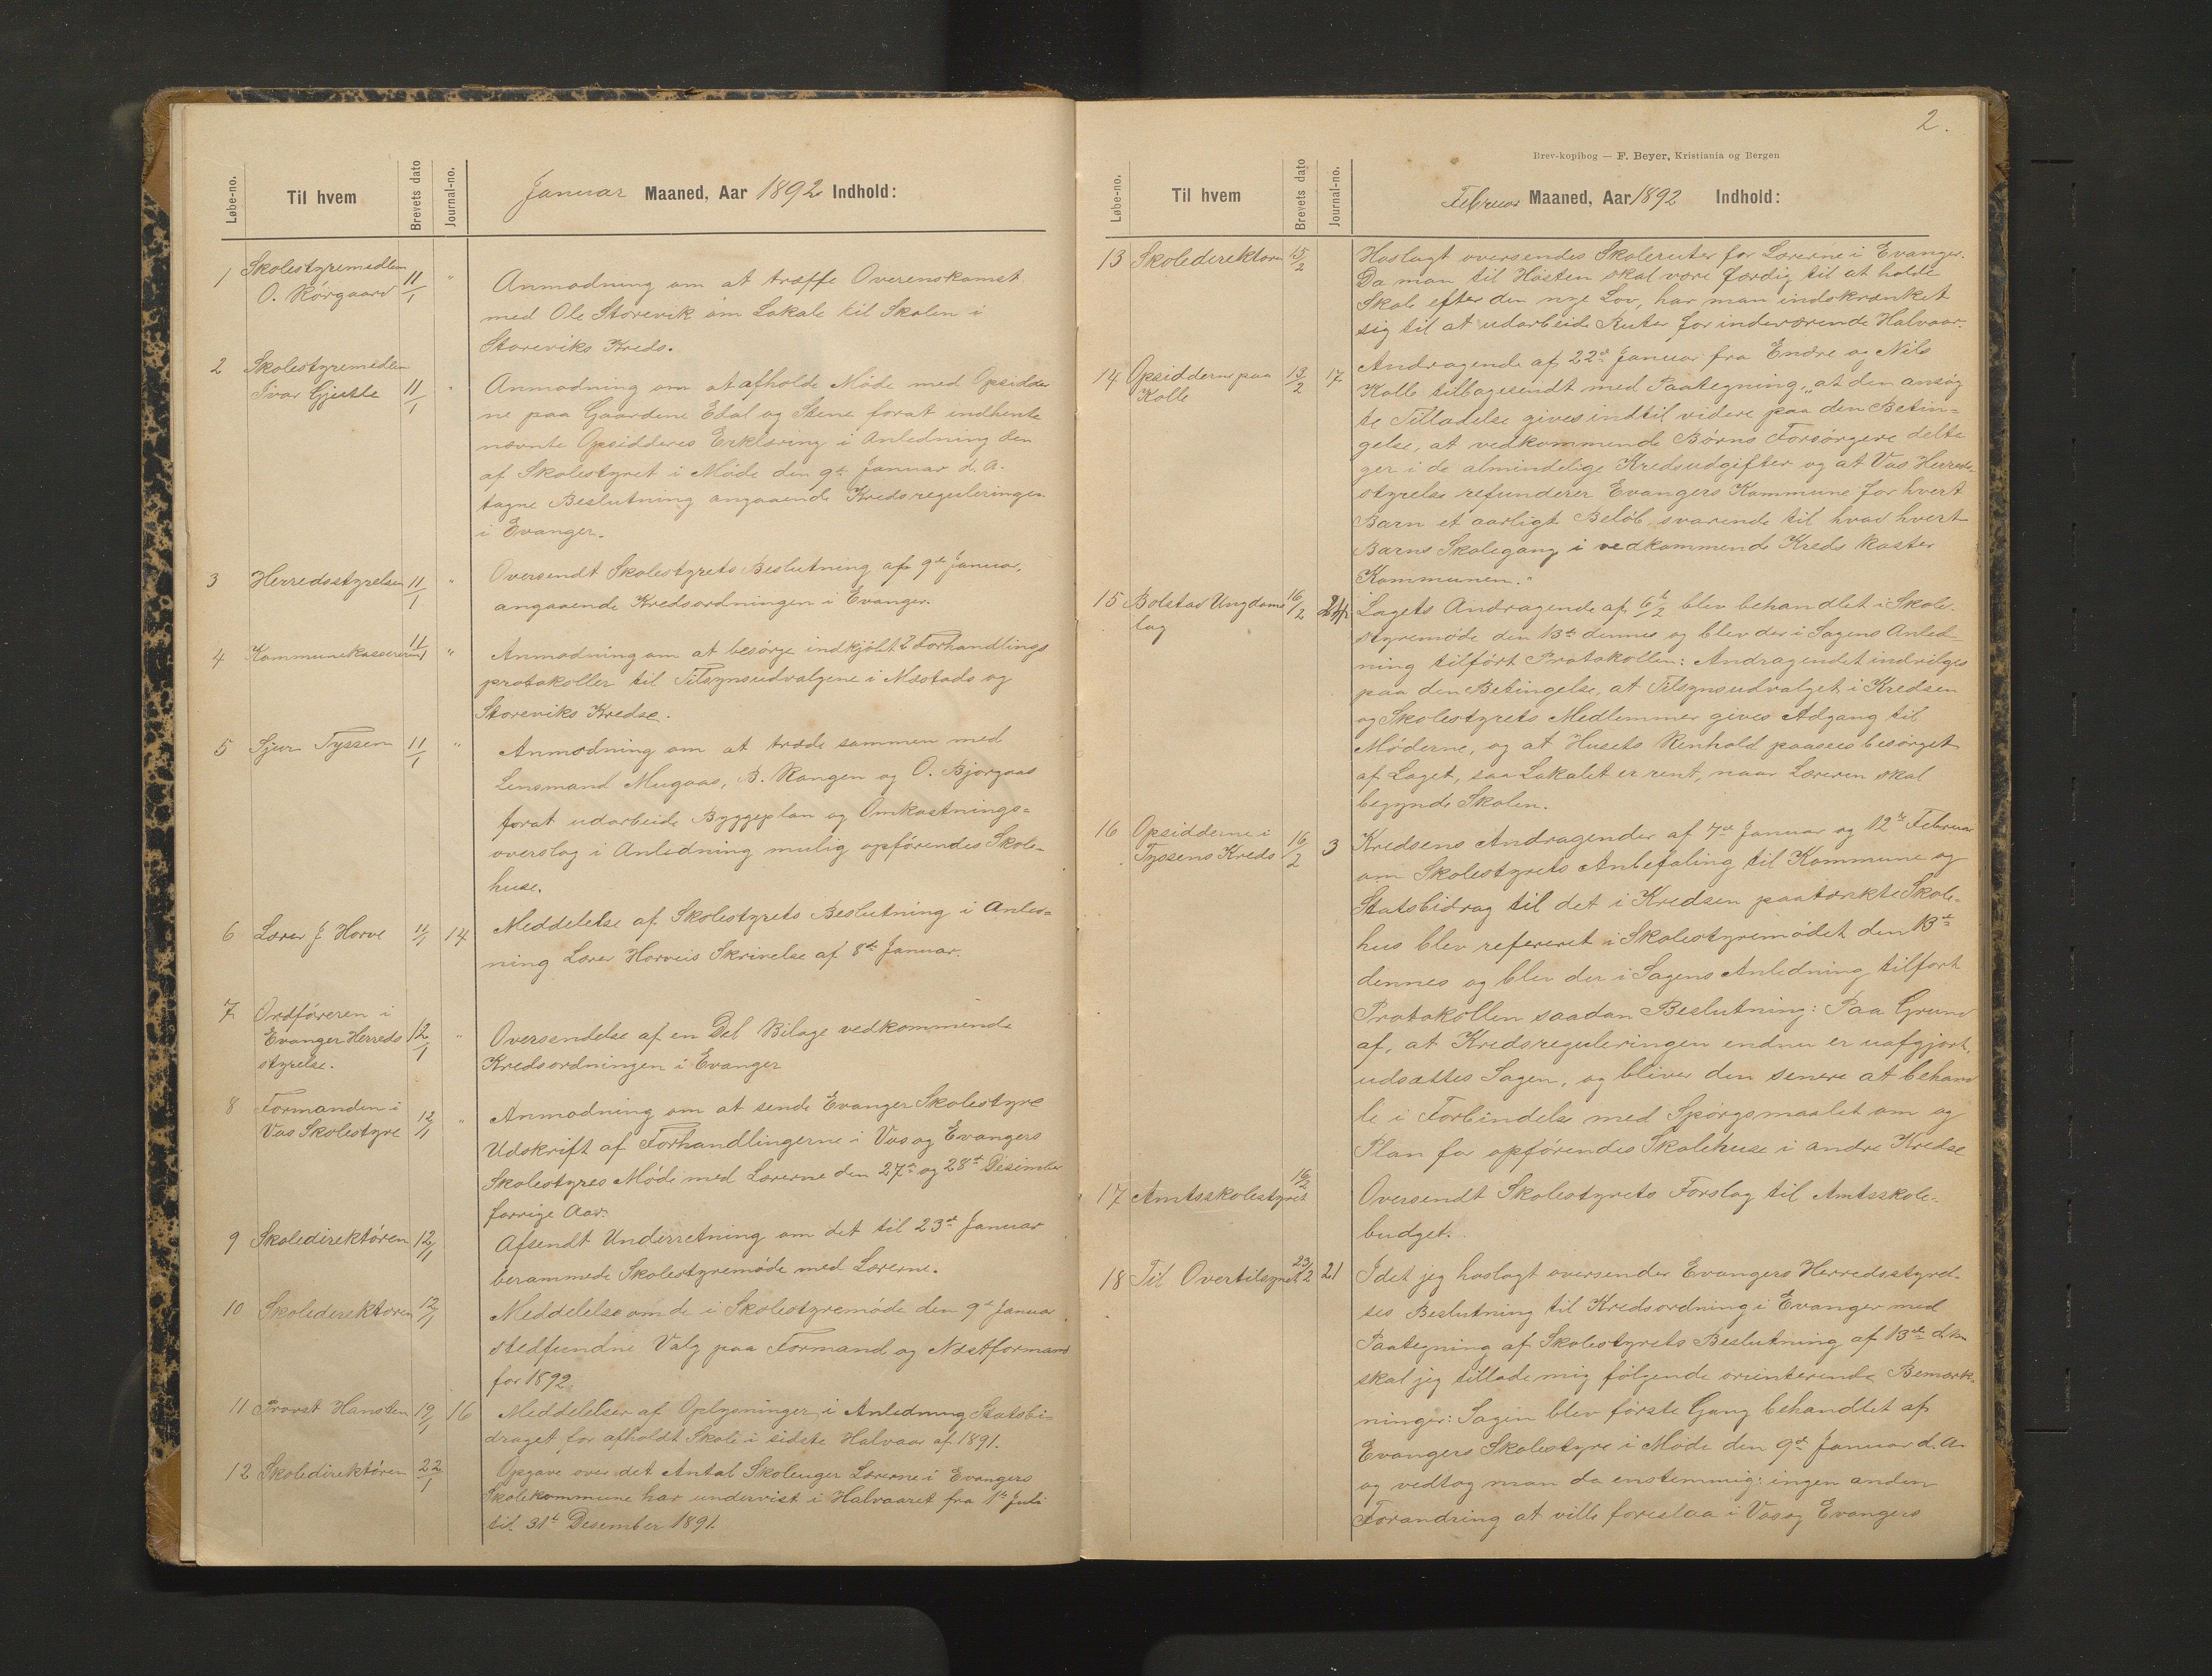 Løbe-no. Til hvem Brevets dato Journal-no. Januar Maaned, Aar 1892 Indhold:
1 Skolestyremedlem
O. Rørgaard 11/1 "
Anmodning om at træffe Overenskomst
med Ole Storevik om Lokale til Skolen i
Storeviks Kreds.
2 Skolestyremedlem
Ivar Gjeitle 11/1 "
Anmodning om at afholde Møde med Opsidder
ne paa Gaardene Edal og Stene forat indhente
nævnte Opsidderes Erklæring i Anledning den
af Skolestyret i Møde den 9de Januar d. A.
tagne Beslutning angaaende Kredsreguleringen
i Evanger.
3 Herredsstyrelsen 11/1 "
Oversendt Skolestyrets Beslutning af 9de Januar,
angaaende Kredsordningen i Evanger.
4 Kommunekassereren 11/1 "
Anmodning om at besørge indkjøbt 2 Forhandlings
protokoller til Tilsynsudvalgene i Mestads og
Storeviks Kredse.
5 Sjur Tyssen 11/1 "
Anmodning om at træde sammen med
Lensmand Mugaas, B. Rangen og O. Bjørgaas
forat udarbeide Byggeplan og Omkostnings=
overslag i Anledning mulig opførendes Skole=
huse.
6 Lærer J Horve 11/1 14
Meddelelse af Skolestyrets Beslutning i Anled=
ning Lærer Horveis Skrivelse af 8de Januar.
7 Ordføreren i
Evanger Herreds
styrelse. 12/1 "
Oversendelse af en Del Bilage vedkommende
Kredsordningen i Evanger
8 Formanden i
Vos Skolestyre 12/1 "
Anmodning om at sende Evanger Skolestyre
Udskrift af Forhandlingerne i Vos og Evangers
Skolestyres Møde med Lærerne den 27de og 28de Desimber
forrige Aar.
9 Skoledirektøren 12/1
Afsendt Underretning om det til 23de Januar
berammede Skolestyremøde med Lærerne.
10 Skoledirektøren 12/1
Meddelelse om de i Skolestyremøde den 9de Januar
stedfundne Valg paa Formand og Næstformand
for 1892.
11 Provst Hansten 19/1 16
Meddelelser af Oplysninger i Anledning Statsbi=
draget for afholdt Skole i sidste Halvaar af 1891.
12 Skoledirektøren 22/1
Opgave over det Antal Skoleuger Lærerne i Evangers
Skolekommune har undervist i Halvaaret fra 1ste Juli
til 31te Desember 1891.
2.
Brev-kopibog — F. Beyer, Kristiania og Bergen
Løbe-no. Til hvem Brevets dato Journal-no. Februar Maaned, Aar 1892 Indhold:
13 Skoledirektøren 15/2
Hoslagt oversendes Skoleruter for Lærerne i Evanger.
Da man til Høsten skal være færdig til at holde
Skole efter den nye Lov, har man indskrænket
sig til at udarbeide Ruter for indeværende Halvaar.
14 Opsidderne paa
Kolle 13/2 17
Andragende af 22de Januar fra Endre og Nils
Kolle tilbagesendt med Paategning, "at den ansøg
te Tilladelse gives indtil videre paa den Betin=
gelse, at vedkommende Børns Forsørgere delta
ger i de almindelige Kredsudgifter og at Vos Herreds
styrelse refunderer Evangers Kommune for hvert
Barn et aarligt Beløb svarende til hvad hvert
Barns Skolegang i vedkommende Kreds koster
Kommunen."
15 Bolstad Ungdoms
lag 16/2 24
Lagets Andragende af 6/2 blev behandlet i Skole-
styremøde den 13de dennes og blev der i Sagens Anled
ning tilført Protokollen: Andragendet indvilges
paa den Betingelse, at Tilsynsudvalget i Kredsen
og Skolestyrets Medlemmer gives Adgang til
Møderne, og at Husets Renhold paasees besørget
af Laget, saa Lokalet er rent, naar Læreren skal
begynde Skolen.
16 Opsidderne i
Tyssens Kreds 16/2 3
Kredsens Andragender af 7de Januar og 12te Februar
om Skolestyrets Anbefaling til Kommune og
Statsbidrag til det i Kredsen paatænkte Skole-
hus blev refereret i Skolestyremødet den 13de
dennes og blev der i Sagens Anledning tilført
Protokollen saadan Beslutning: Paa Grund
af, at Kredsreguleringen endnu er uafgjort,
udsættes Sagen, og bliver den senere at behand
le i Forbindelse med Spørgsmaalet om og
Plan for opførendes Skolehuse i andre Kredse
17 Amtsskolestyret 16/2
Oversendt Skolestyrets Forslag til Amtsskole-
budget.
18 Til Overtilsynet 23/2 21
Idet jeg hoslagt oversender Evangers Herredsstyrel-
ses Beslutning til Kredsordning i Evanger med
Paategning af Skolestyrets Beslutning af 13de ds
skal jeg tillade mig følgende orienterende Bemærk-
ninger: Sagen blev første Gang behandlet af
Evangers Skolestyre i Møde den 9de Januar d. A.
og vedtog man da enstemmig: ingen anden
Forandring at ville foreslaa i Vos og Evangers